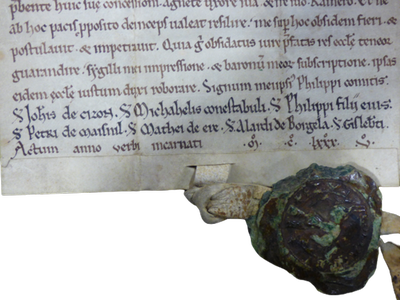 pbente huic sue concessioni. agnete uxore sua. & ne no Rainero. Et ne
ab hoc pacis p̱posito deinceps ualeat resilire. me sup hoc obsidem fieri. &
postulauit. & impetrauit. Quia g̊ obsidatus ueritatis res eccle teneor
guarandire. sigilli mei impressione. & baronū meoꝝ subscriptione. ipsas
eidem eccle iustum duxi roborare. Signum meū Philippi comitis.
S. Johis de cirois. S. Michahelis conestabuli. S. Philippi filii eius.
S. Petri de maisnil. S. Mathei de ere. S. Alardi de Borgela. S. Gisleb̄ti.
Actum anno verbi incarnati . M̊ . C̊ . lxxx . V̊ .